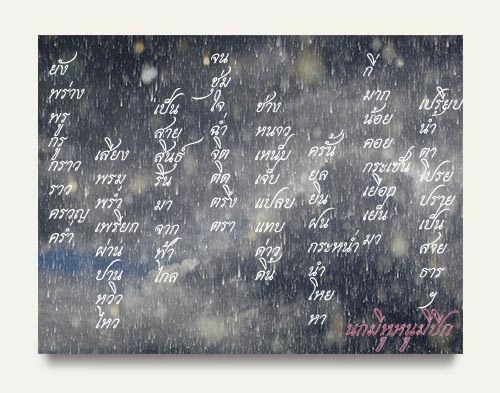 ยัง พร่าง พรู กรู กราว ราว ครวญ คร่ำ
เสียง พรม พร่ำ เพรียก ผ่าน ปาน หวิว ไหว
เป็น สาย สินธุ์ ริน มา จาก ฟ้า ไกล
จน ชุ่ม ใจ ฉ่ำ จิต ติด ตรึง ตรา
ช่าง หนาว เหน็บ เจ็บ แปลบ แทบ ดาว ดิ้น
ครั้น ยล ยิน ฝน กระหน่ำ นำ โหย หา
กี่ มาก น้อย คอย กระเซ็น เยือก เย็น มา
เปรียบ น้ำ ตา โปรย ปราย เป็น สาย ธาร ฯ
นกมีหูหนูมีปีก